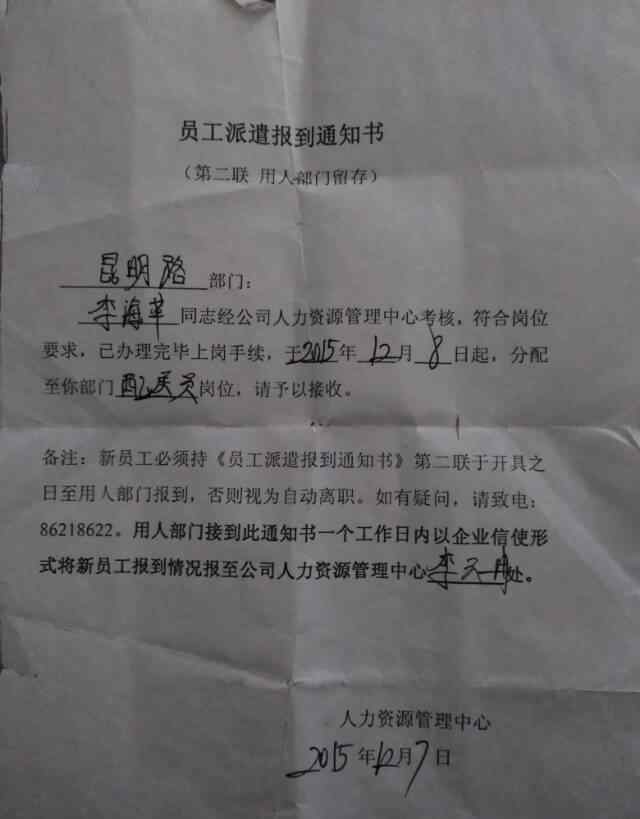 员工派遣报到通知书
（第二联 用人部门留存）
昆明路部门：
李海苹同志经公司人力资源管理中心考核，符合岗位
要求，已办理完毕上岗手续，于2015年12月8日起，分配
至你部门配送员岗位，请予以接收。
备注：新员工必须持《员工派遣报到通知书》第二联于开具之
日至用人部门报到，否则视为自动离职。如有疑问，请致电：
86218622。用人部门接到此通知书一个工作日内以企业信使形
式将新员工报到情况报至公司人力资源管理中心李处。
人力资源管理中心
2015年12月7日